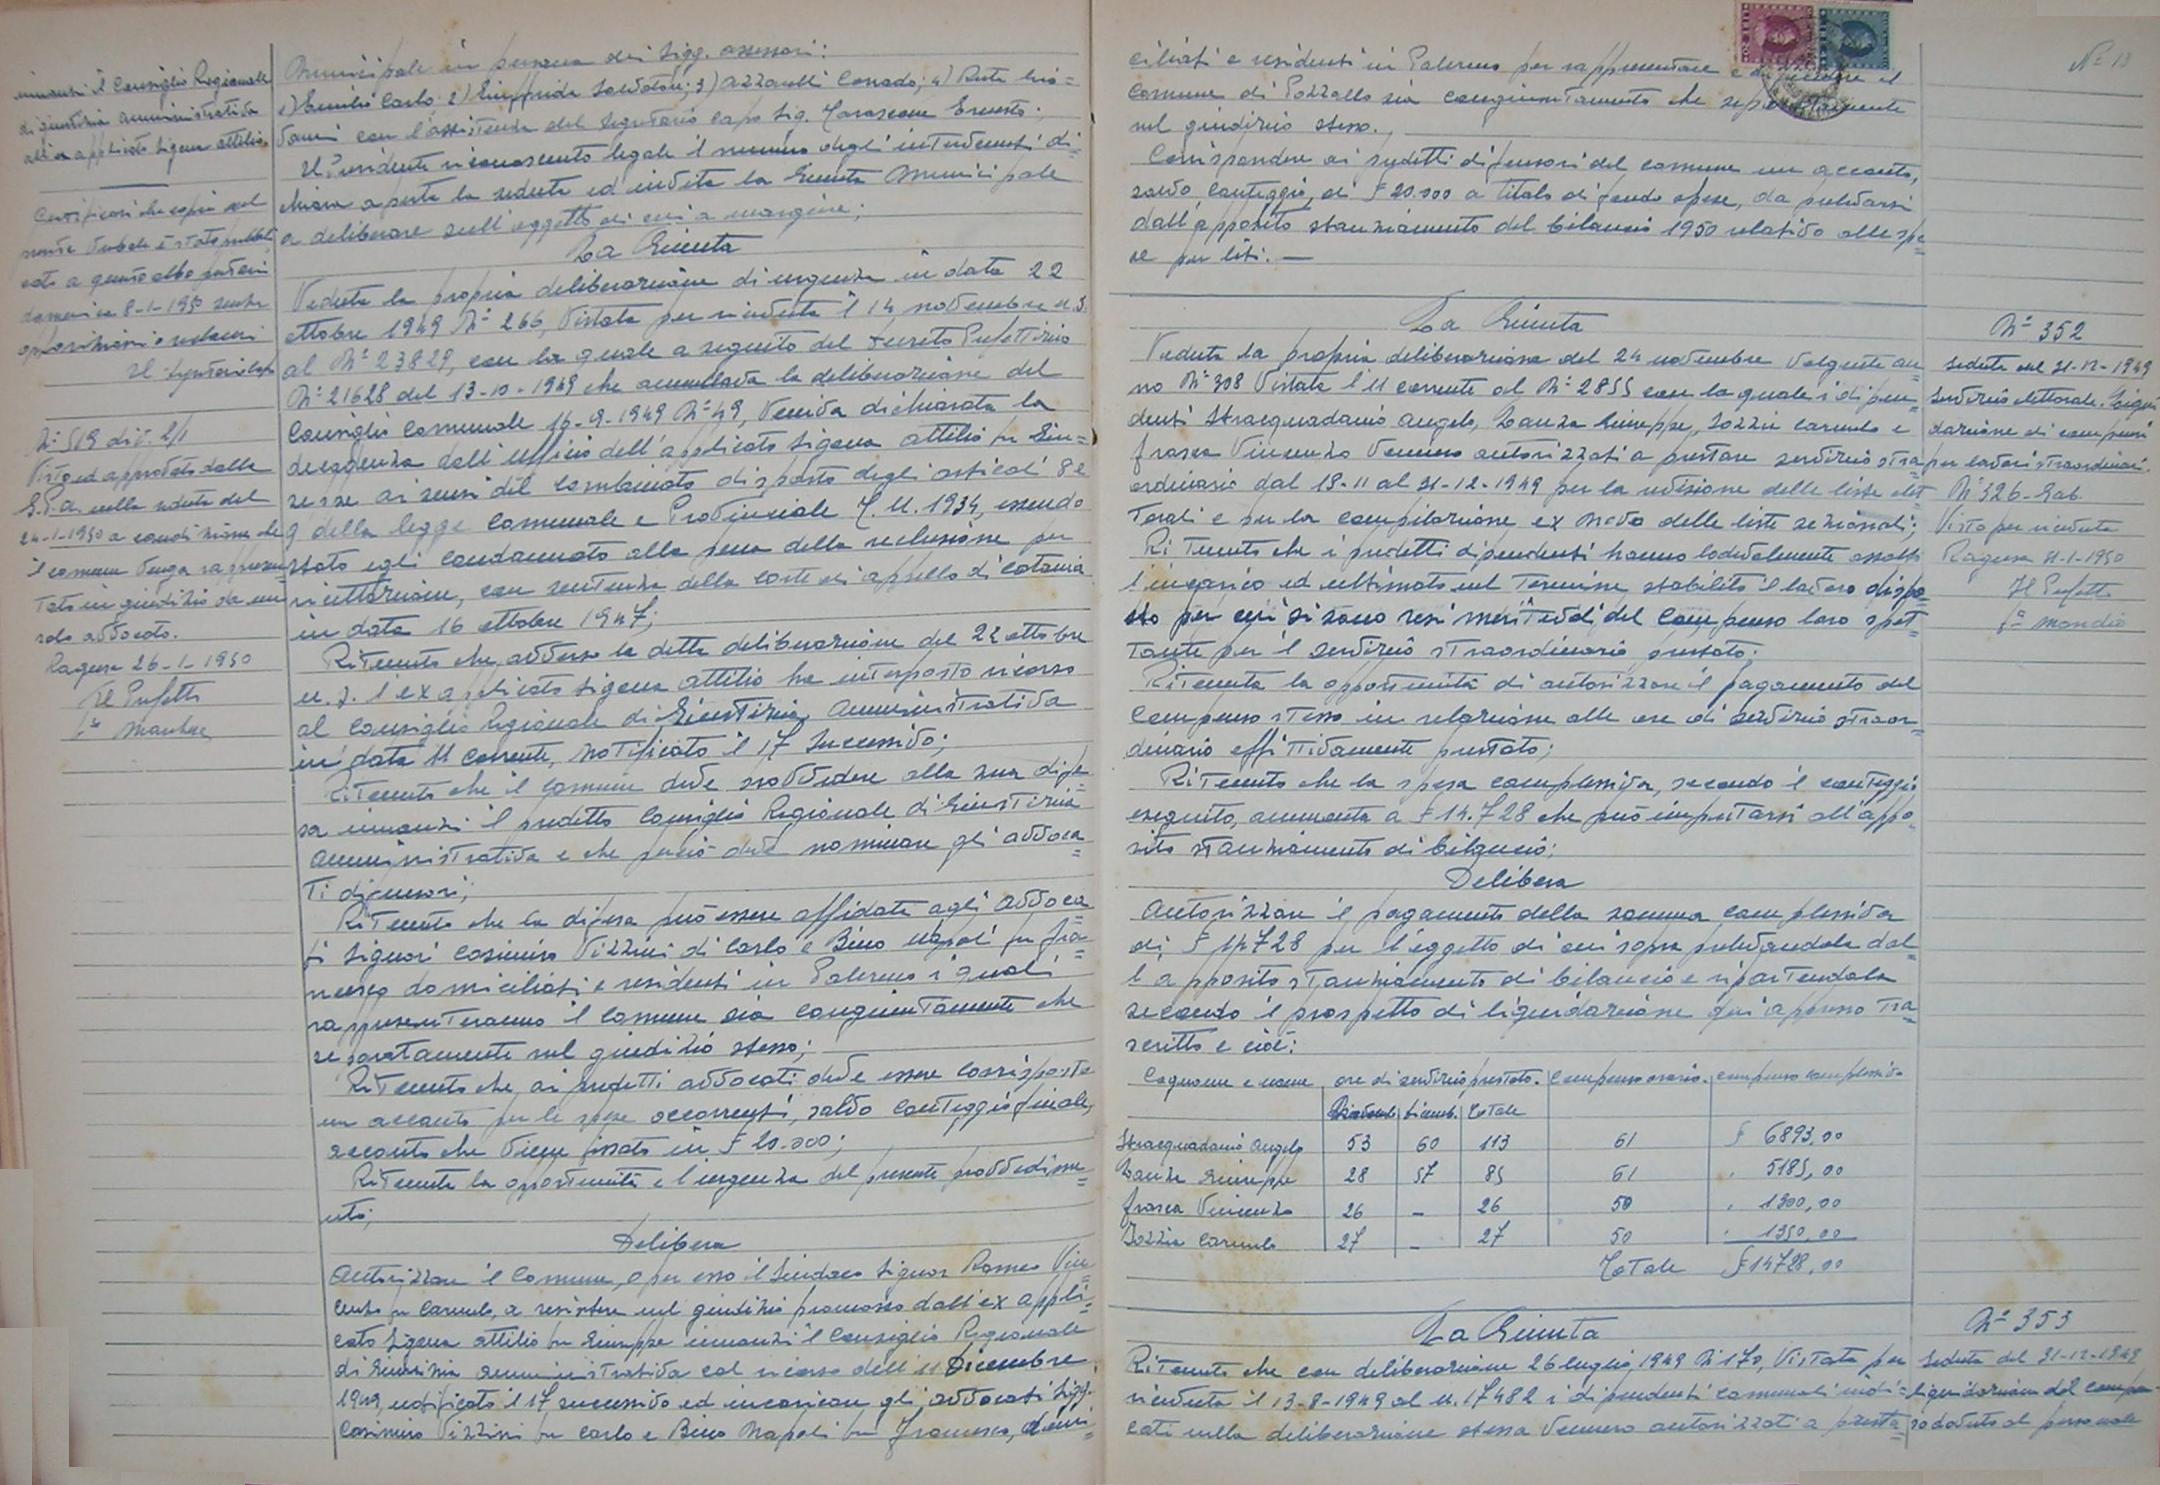 innanzi il Consiglio Regionale
di giustizia amministrativa
all'ex applicato Sigona Attilio
Certificasi che copia del
presente verbale è stata pubbli
cata a questo albo pretorio
domenica 8-1-1950 senza
opposizioni o reclami
Il Segretario Capo
N° 519 div. 2/1
Vista ed approvata dalla
G.P.A. nella seduta del
24-1-1950 a condizione che
il comune venga rappresen
tato in giudizio da un
solo avvocato.
Ragusa 26-1-1950
Il Prefetto
Municipale in persona dei Sigg. assessori:
1) Emilio Carlo 2) Giuffrida Salvatore; 3) Azzarelli Corrado; 4) Ruta Gio=
vanni con l'assistenza del Segretario Capo Sig. Tarascone Ernesto;
Il Presidente riconosciuto legale il numero degli intervenuti di=
chiara aperta la seduta ed invita la Giunta Municipale
a deliberare sull'oggetto di cui a margine;
La Giunta
Veduta la propria deliberazione di urgenza in data 22
ottobre 1949 N° 266, vistata per ricevuta il 14 novembre u.s.
al N° 23829, con la quale a seguito del decreto Prefettizio
N° 21628 del 13-10-1949 che annullava la deliberazione del
Consiglio Comunale 16-9-1949 N° 49, veniva dichiarata la
decadenza dall'ufficio dell'applicato Sigona Attilio fu Giu=
seppe ai sensi del combinato disposto degli articoli 8 e
9 della legge Comunale e Provinciale T.U. 1934, essendo
stato egli condannato alla pena della reclusione per
ricettazione, con sentenza della Corte di appello di Catania
in data 16 ottobre 1947;
Ritenuto che, avverso la detta deliberazione del 22 ottobre
u.s. l'ex applicato Sigona Attilio ha interposto ricorso
al Consiglio Regionale di Giustizia Amministrativa
in data 11 corrente, notificato il 17 successivo;
Ritenuto che il comune deve provvedere alla sua dife=
sa innanzi il predetto Consiglio Regionale di Giustizia
Amministrativa e che perciò deve nominare gli avvoca=
ti difensori;
Ritenuto che la difesa può essere affidata agli avvoca=
ti Signori Casimiro Vizzini di Carlo e Bino Napoli fu Fra=
ncesco domiciliati e residenti in Palermo i quali
rappresenteranno il comune sia congiuntamente che
separatamente nel giudizio stesso;
Ritenuto che, ai predetti avvocati deve essere corrisposto
un acconto per le spese occorrenti, salvo conteggio finale,
acconto che viene fissato in £ 20.000;
Ritenuta la opportunità e l'urgenza del presente provvedime=
nto;
Delibera
Autorizzare il Comune, e per esso il Sindaco Signor Romeo Vin=
cenzo fu Carmelo, a resistere nel giudizio promosso dall'ex appli=
cato Sigona Attilio fu Giuseppe innanzi il Consiglio Regionale
di Giustizia amministrativa col ricorso dell'11 Dicembre
1949, notificato il 17 successivo ed incaricare gli avvocati Sigg.
Casimiro Vizzini fu Carlo e Bino Napoli fu Francesco, domi=
N° 13
ciliati e residenti in Palermo per rappresentare e difendere il
comune di Pozzallo sia congiuntamente che separatamente
nel giudizio stesso.
Corrispondere ai sudetti difensori del comune un acconto,
salvo conteggio, di £ 20.000 a titolo di fondo spese, da prelevarsi
dall'apposito stanziamento del bilancio 1950 relativo alle spe=
se per liti.
La Giunta
Veduta la propria deliberazione del 24 novembre volgente an=
no N° 308 vistata l'11 corrente al N° 2855 con la quale i dipen=
denti Stracquadanio Angelo, Lanza Giuseppe, Iozzia Carmelo e
Frasca Vincenzo vennero autorizzati a prestare servizio stra=
ordinario dal 19-11 al 31-12-1949 per la revisione delle liste elet=
torali e per la compilazione ex novo delle liste sezionali;
Ritenuto che i predetti dipendenti hanno lodevolmente assolto
l'incarico ed ultimato nel termine stabilito il lavoro dispo=
sto per cui si sono resi meritevoli del compenso loro spet=
tante per il servizio straordinario prestato;
Ritenuta la opportunità di autorizzare il pagamento del
compenso stesso in relazione alle ore di servizio straor=
dinario effettivamente prestato;
Ritenuto che la spesa complessiva, secondo il conteggio
eseguito, ammonta a £ 14.728 che può imputarsi all'appo=
sito stanziamento di bilancio;
Delibera
Autorizzare il pagamento della somma complessiva
di £ 14728 per l'oggetto di cui sopra prelevandola dal=
l'apposito stanziamento di bilancio e ripartendola
secondo il prospetto di liquidazione qui appresso tra=
scritto e cioè:
Cognome e nome ore di servizio prestato. Compenso orario. compenso complessivo
Novemb. Dicemb. Totale
Stracquadanio Angelo 53 60 113 61 £ 6893,00
Lanza Giuseppe 28 57 85 61 " 5185,00
Frasca Vincenzo 26 - 26 50 " 1300,00
Iozzia Carmelo 27 - 27 50 " 1350,00
Totale £ 14728,00
La Giunta
Ritenuto che con deliberazione 26 luglio 1949 N° 170, vistata per
ricevuta il 13-8-1949 al n. 17482 i dipendenti comunali indi=
cati nella deliberazione stessa vennero autorizzati a presta=
N° 352
Seduta del 31-12-1949
Servizio elettorale. Liqui
dazione di compensi
per lavori straordinari.
N° 326-Gab
Visto per ricevuta
Ragusa 31-1-1950
Il Prefetto
N° 353
Seduta del 31-12-1949
liquidazione del compen=
so dovuto al personale